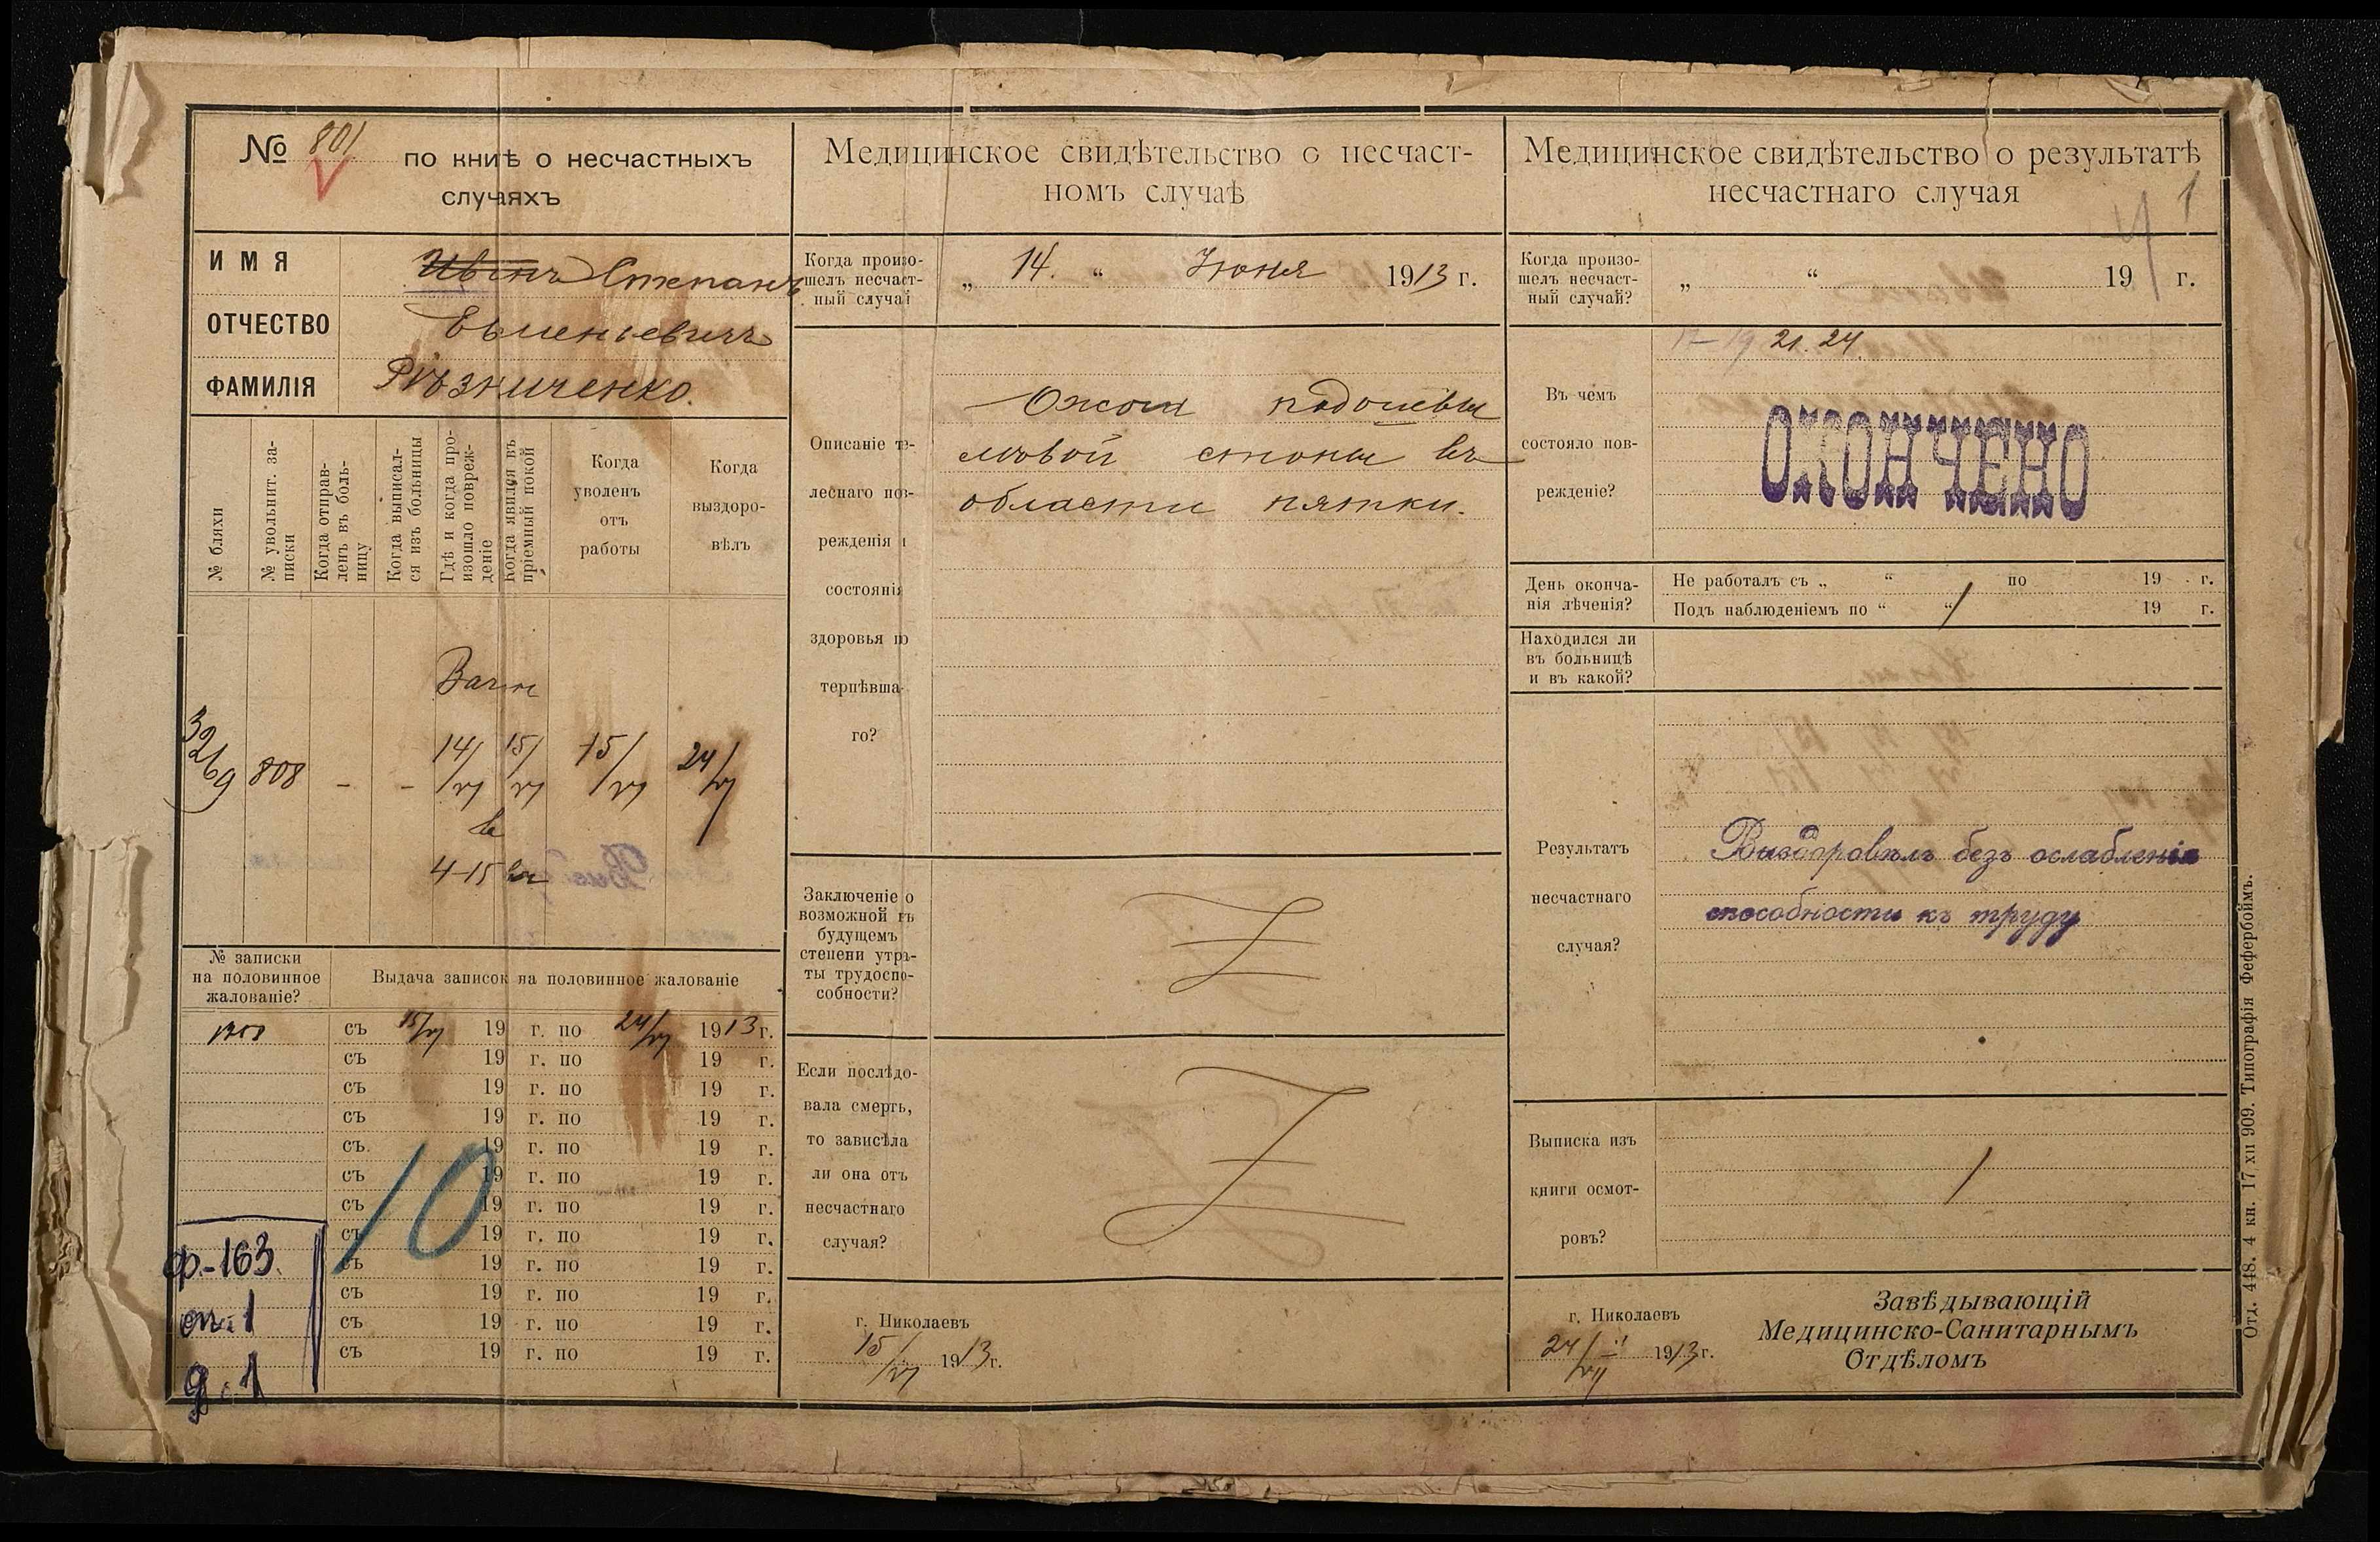 № 801 по книѣ о несчастныхъ
случаяхъ
ИМЯ
Иванъ Степанъ
ОТЧЕСТВО
ФАМИЛІЯ
Рѣзниченко.
№ бляхи
№ увольнит. за-
писки
Когда отправ-
ленъ въ боль-
ницу
Когда выписал-
ся изъ больницы
Гдѣ и когда про-
изошло повреж-
деніе
Когда явился въ
пріемный покой
Когда
уволенъ
отъ
работы
Когда
выздоро-
вѣлъ
3269
808
-
-
14/VI
15/VI
15/VI
24/VI
в
4-15
№ записки
на половинное
жалованіе?
Выдача записокъ на половинное жалованіе
съ 15/VI 19 г. по 24/VI 1913 г.
съ 19 г. по 19 г.
съ 19 г. по 19 г.
съ 19 г. по 19 г.
съ 19 г. по 19 г.
съ 19 г. по 19 г.
съ 19 г. по 19 г.
съ 19 г. по 19 г.
съ 19 г. по 19 г.
съ 19 г. по 19 г.
съ 19 г. по 19 г.
съ 19 г. по 19 г.
10
ф.-163.
оп.1
д.1
Медицинское свидѣтельство о несчаст-
номъ случаѣ
Когда произо-
шелъ несчаст-
ный случай
„ 14. “ Іюня 1913 г.
Описаніе тѣ-
леснаго пов-
режденія и
состоянія
здоровья по
терпѣвша-
го?
Ожогъ подошвы
лѣвой стопы въ
области пятки.
Заключеніе о
возможной въ
будущемъ
степени утра-
ты трудоспо-
собности?
Если послѣдо-
вала смерть,
то зависѣла
ли она отъ
несчастнаго
случая?
г. Николаевъ
15/VI 1913 г.
Медицинское свидѣтельство о результатѣ
несчастнаго случая
1
Когда произо-
шелъ несчаст-
ный случай?
„ “ 19 г.
17-19 21. 24.
Въ чемъ
состояло пов-
режденіе?
ОКОНЧЕНО
День оконча-
нія лѣченія?
Не работалъ съ „ “ по 19 г.
Подъ наблюденіемъ по “ “ 19 г.
Находился ли
въ больницѣ
и въ какой?
Результатъ
несчастнаго
случая?
Выздоровѣлъ безъ ослабленія
способности къ труду
Выписка изъ
книги осмот-
ровъ?
г. Николаевъ
24/VI 1913 г.
Завѣдывающій
Медицинско-Санитарнымъ
Отдѣломъ
Отд. 448. 4 кн. 17 XII 909. Типографія Фефербоймъ.